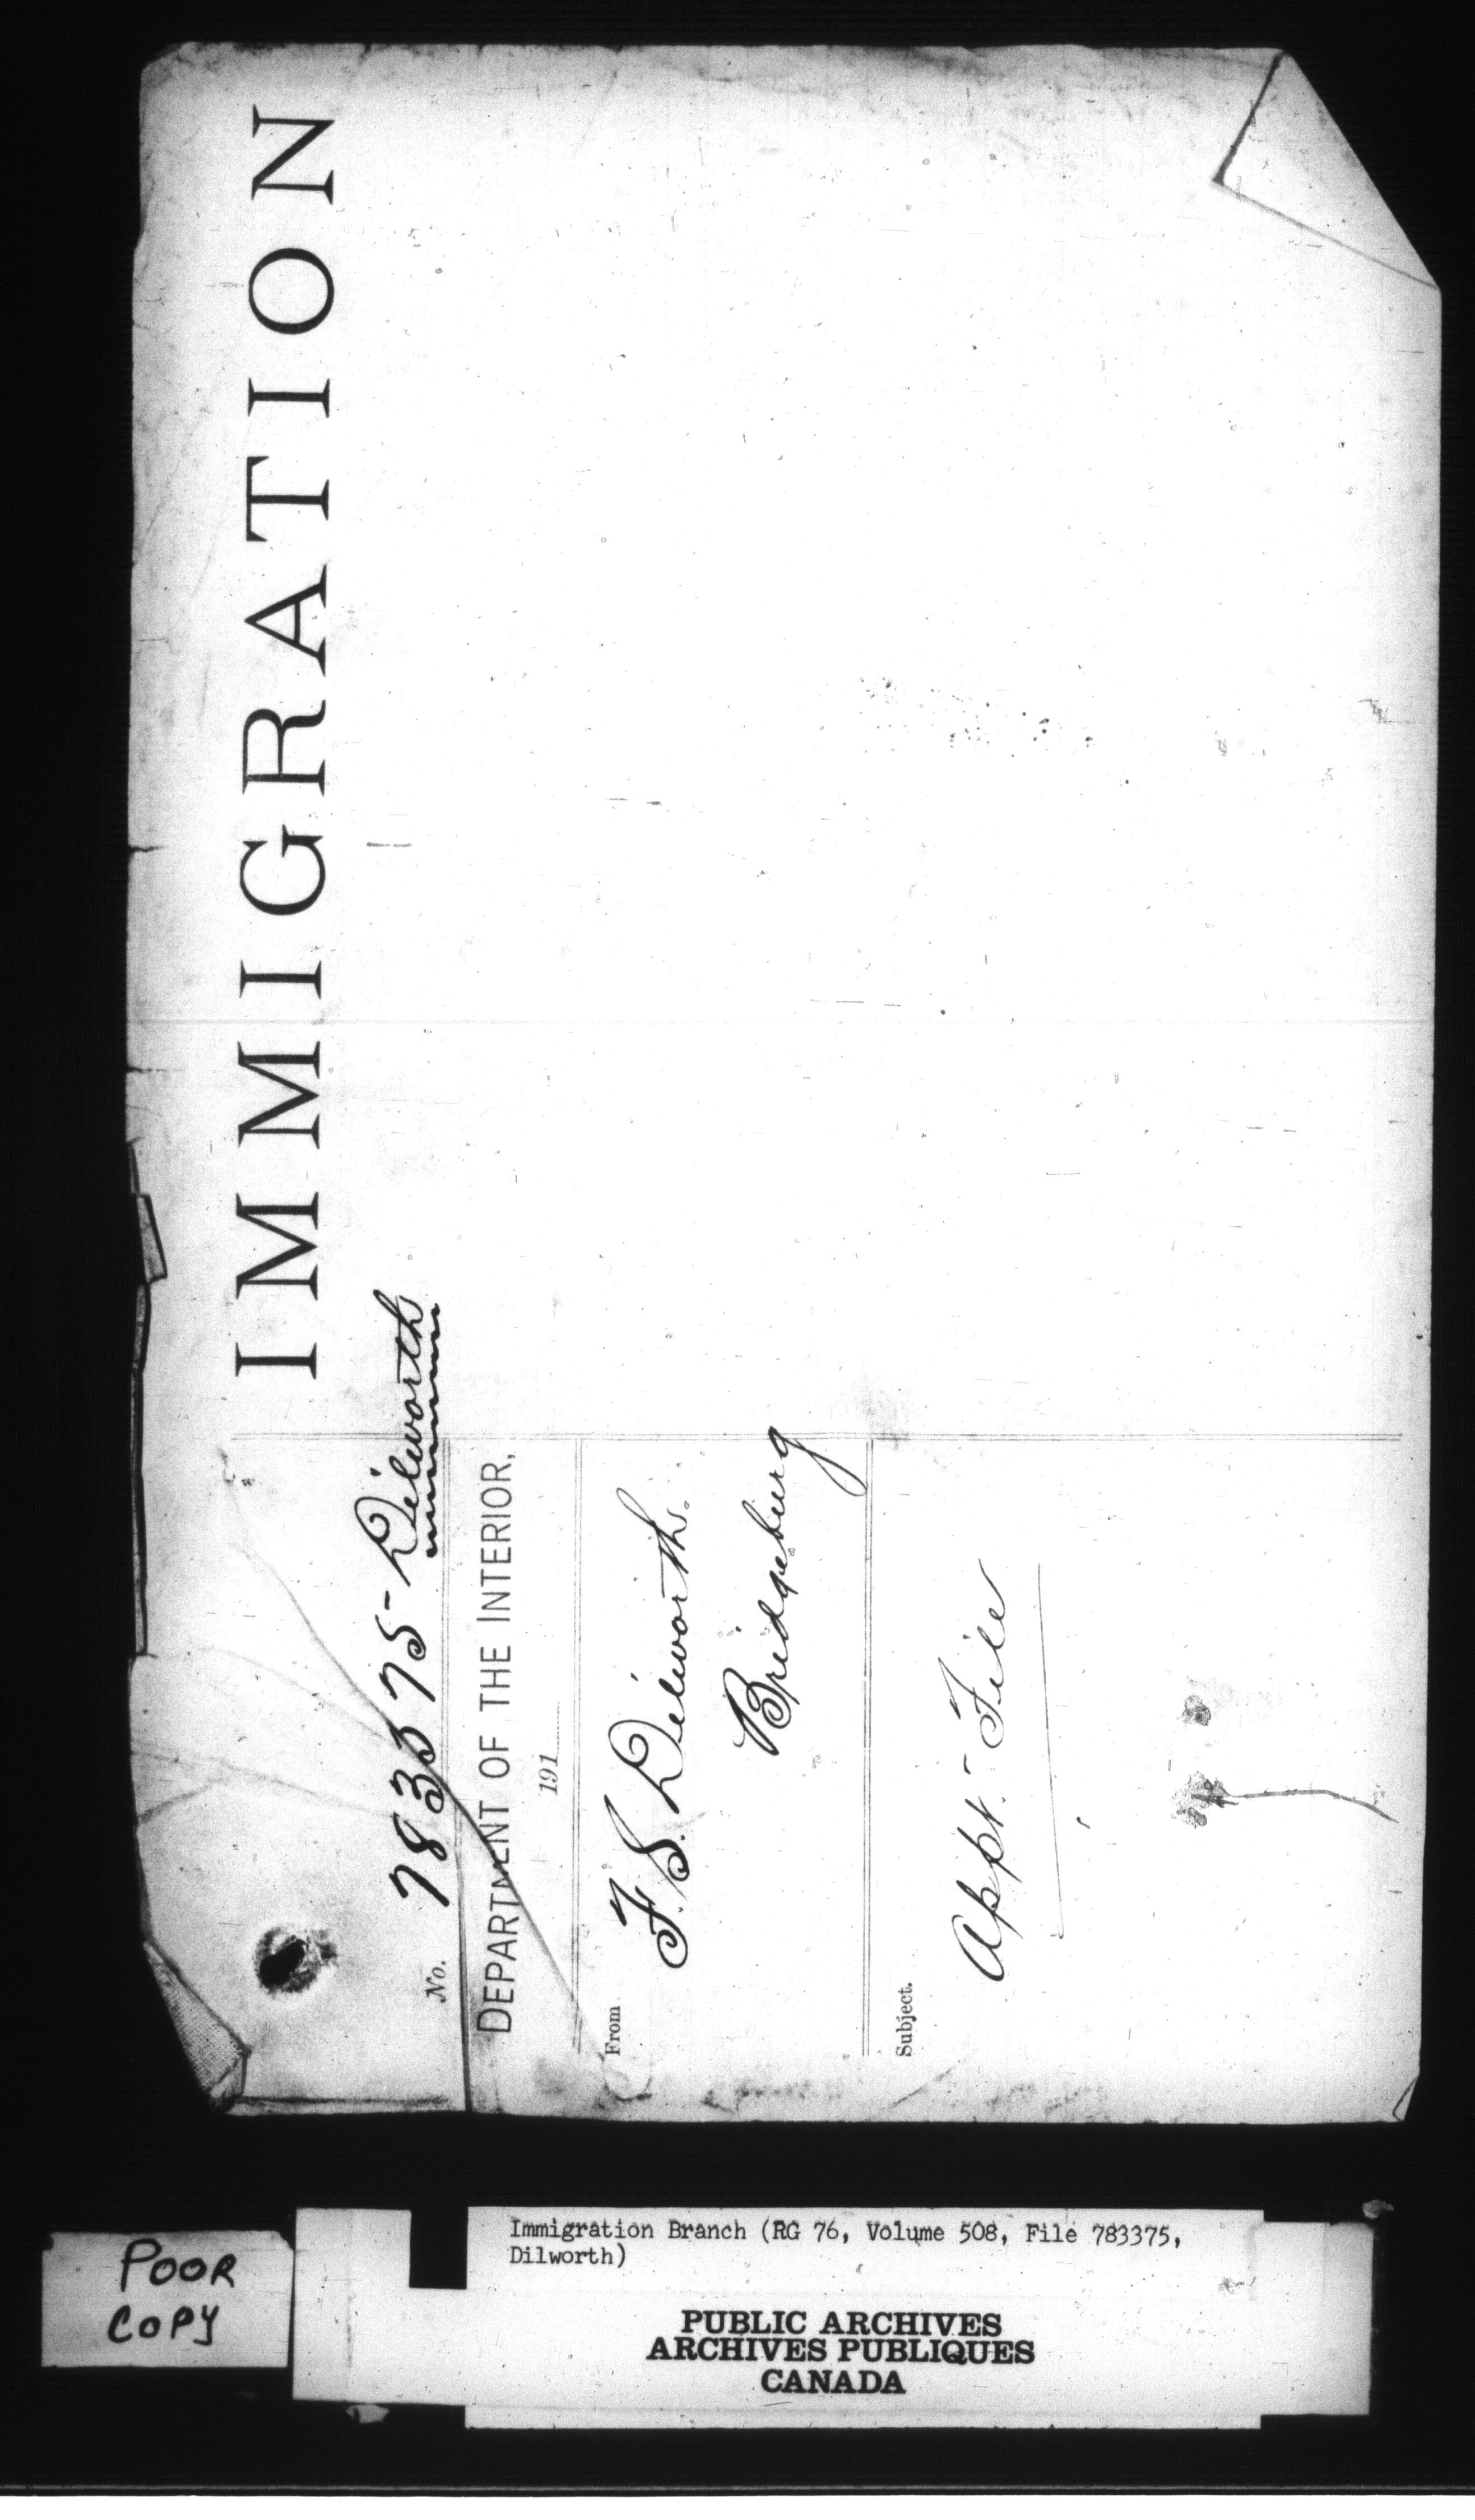 IMMIGRATION
No. 783375-Dilworth
DEPARTMENT OF THE INTERIOR,
191
From
F. S. Dilworth.
Bridgeburg
Subject.
Appt. - File
POOR
COPY
Immigration Branch (RG 76, Volume 508, File 783375,
Dilworth)
PUBLIC ARCHIVES
ARCHIVES PUBLIQUES
CANADA